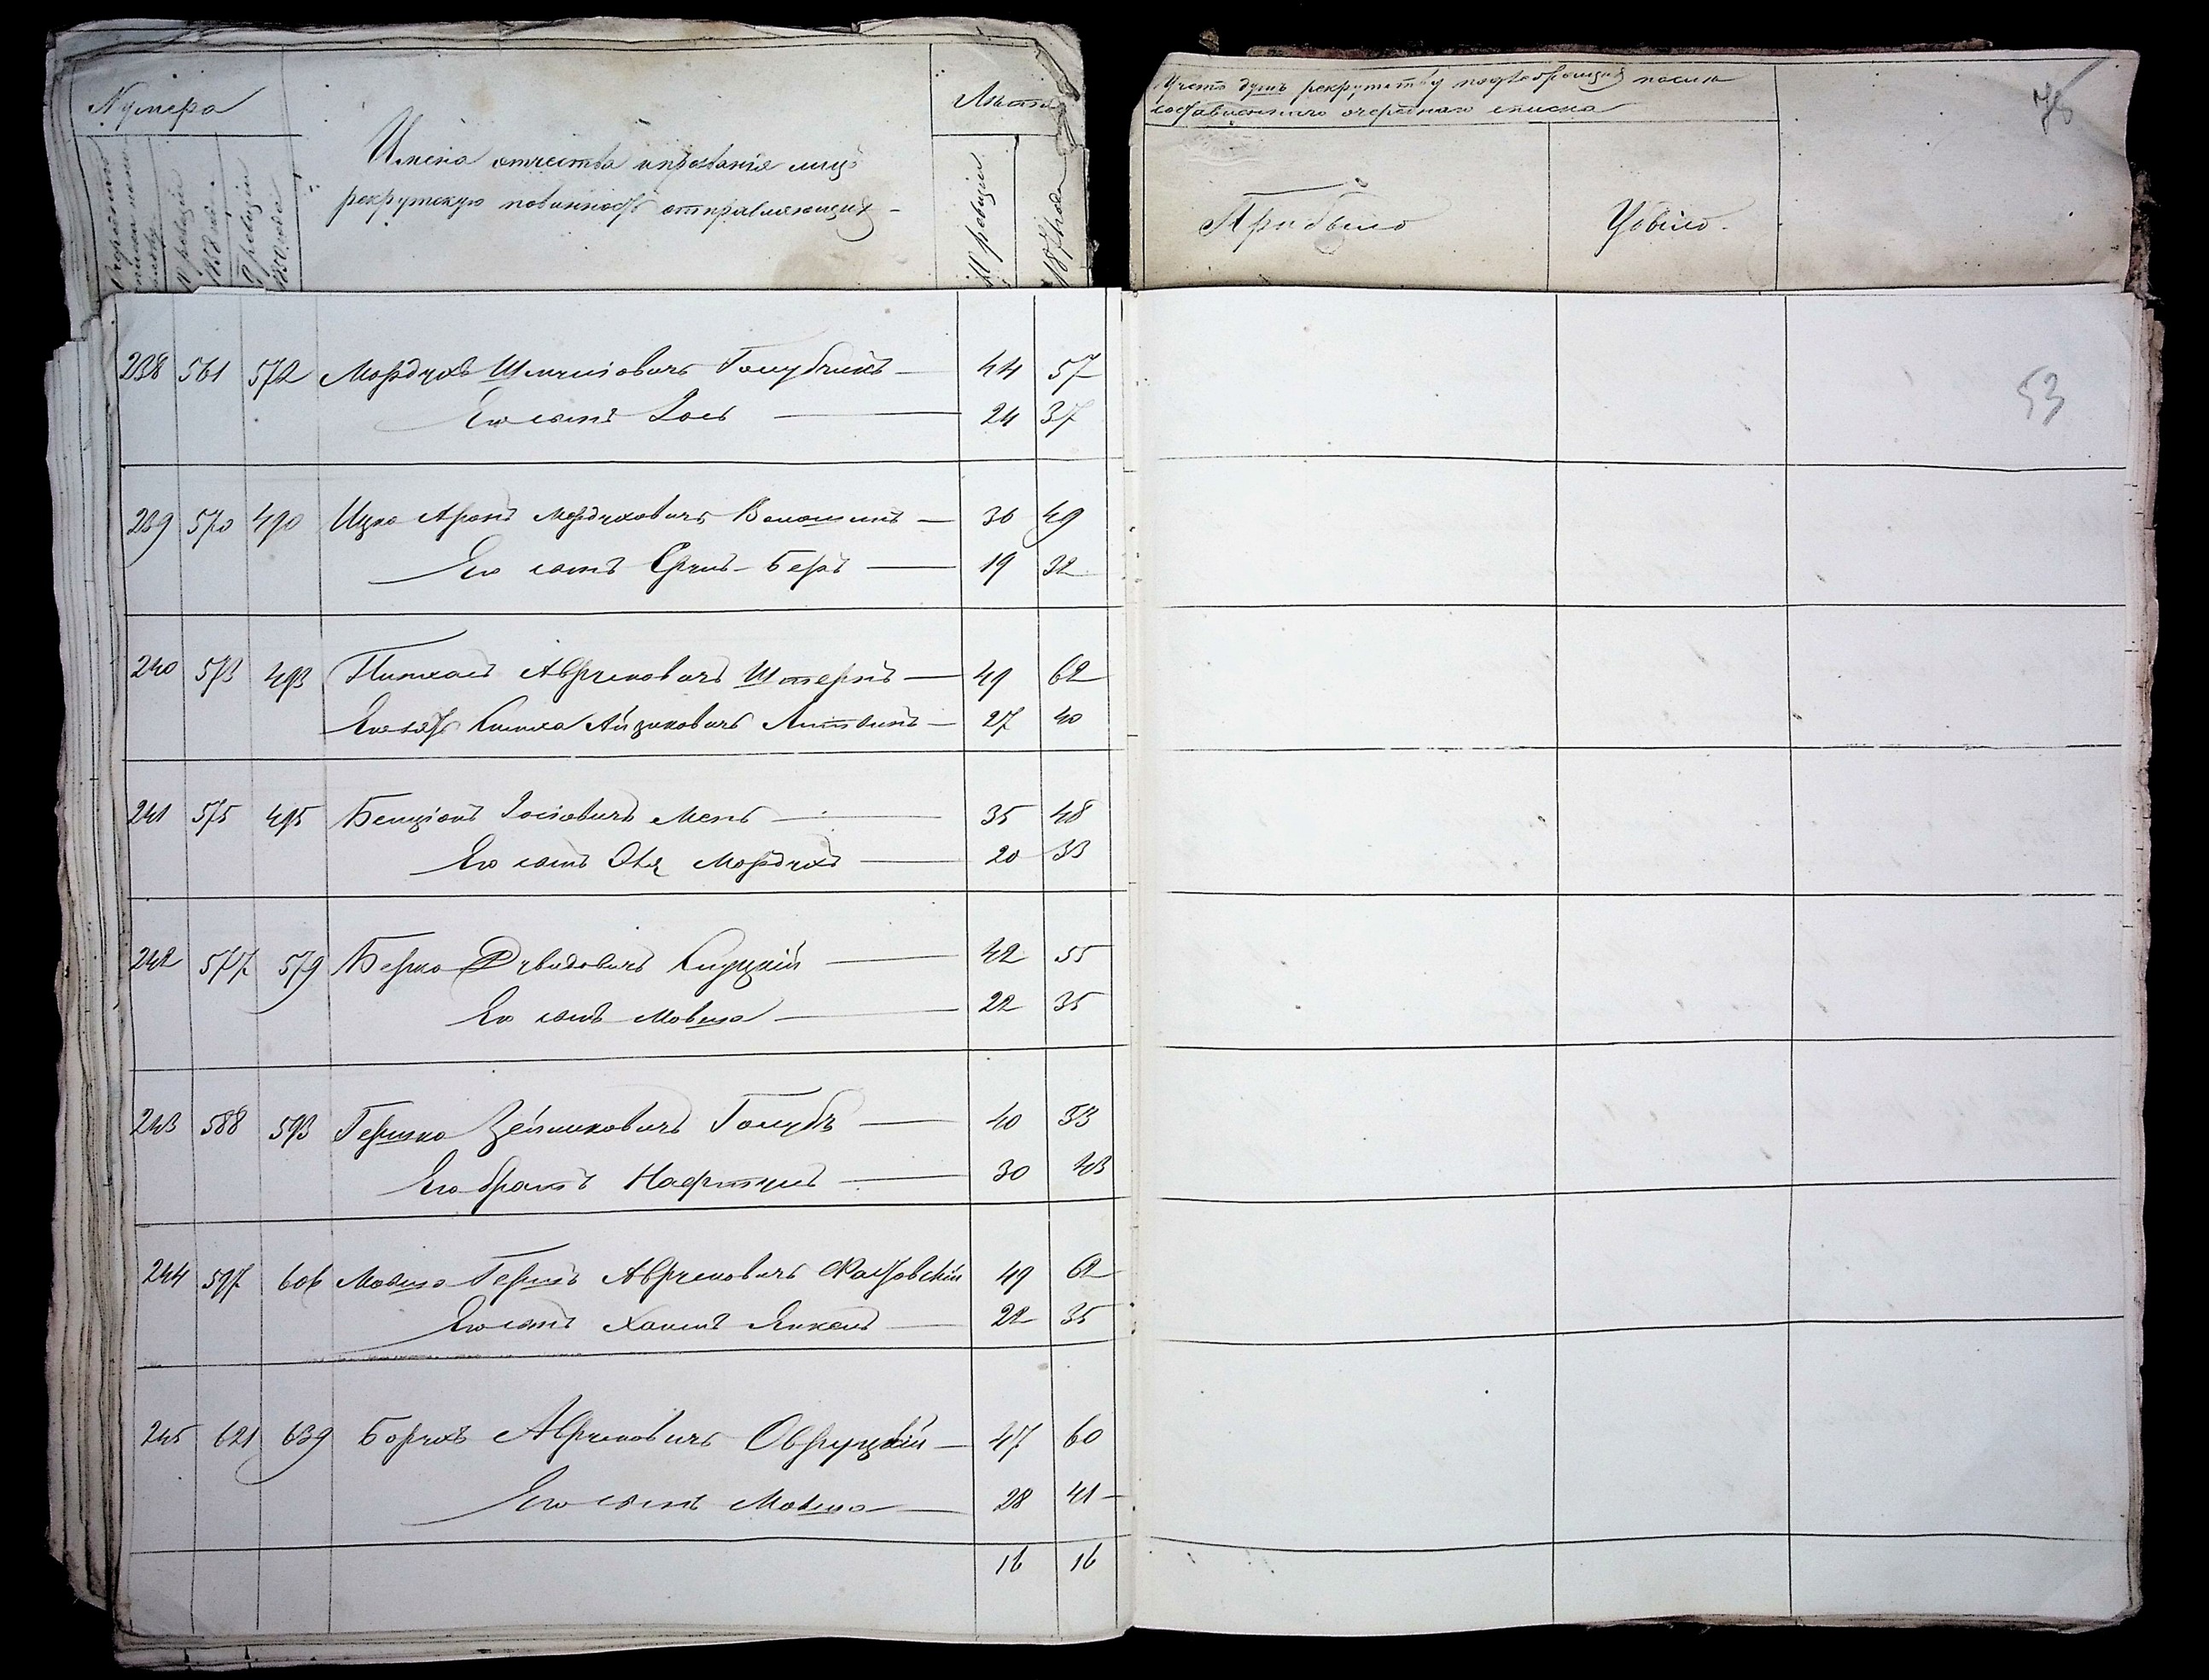 Нумера
Имена отчества и прозвания лицъ
рекрутскую повинность отправляющихъ
Лѣта
по порядку
X ревизіи
1858 года
9 ревизіи
1850 года
X ревизіи
1871 года
Учетъ душъ рекрутству подлежащихъ послѣ
составленнаго очереднаго списка
Прибыло
Убыло.
75
53
238 561 572 Мордухъ Шмулiовичъ Голубчикъ — 44 57
Его сынъ Iось — 24 37
239 570 490 Ицко Аронъ Мордуховичъ Волошинъ — 36 49
Его сынъ Сруль-Беръ — 19 32
240 573 493 Пинхасъ Аврумовичъ Штернъ — 49 62
Его зять Кишка Айзиковичъ Литвинъ — 27 40
241 575 495 Бенціонъ Іосіовичъ Мень — 35 48
Его сынъ Овл Мордухъ — 20 33
242 577 579 Берко Дувидовичъ Слуцкій — 42 55
Его сынъ Мовша — 22 35
243 588 593 Гершко Зейликовичъ Голубъ — 40 53
Его братъ Нафтулъ — 30 43
244 597 606 Мовша Гершъ Аврумовичъ Фастовскій 49 62
Его сынъ Хаимъ Янкель — 22 35
245 621 639 Борухъ Аврумовичъ Овруцкій — 47 60
Его сынъ Мовша — 28 41 —
16 16